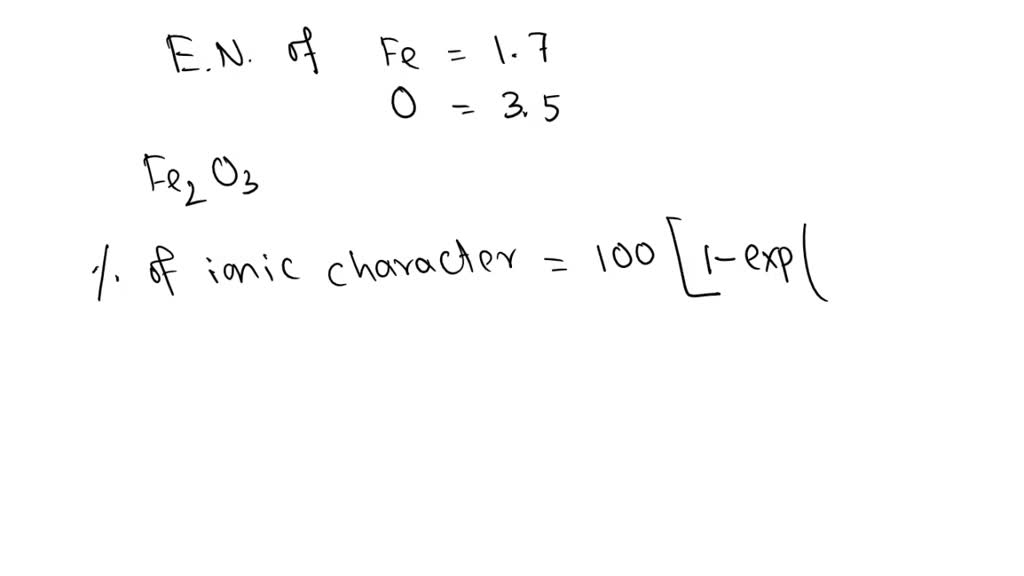 E.N. of Fe = 1.7
O = 3.5
Fe₂O₃
%. of ionic character = 100 [1-exp(